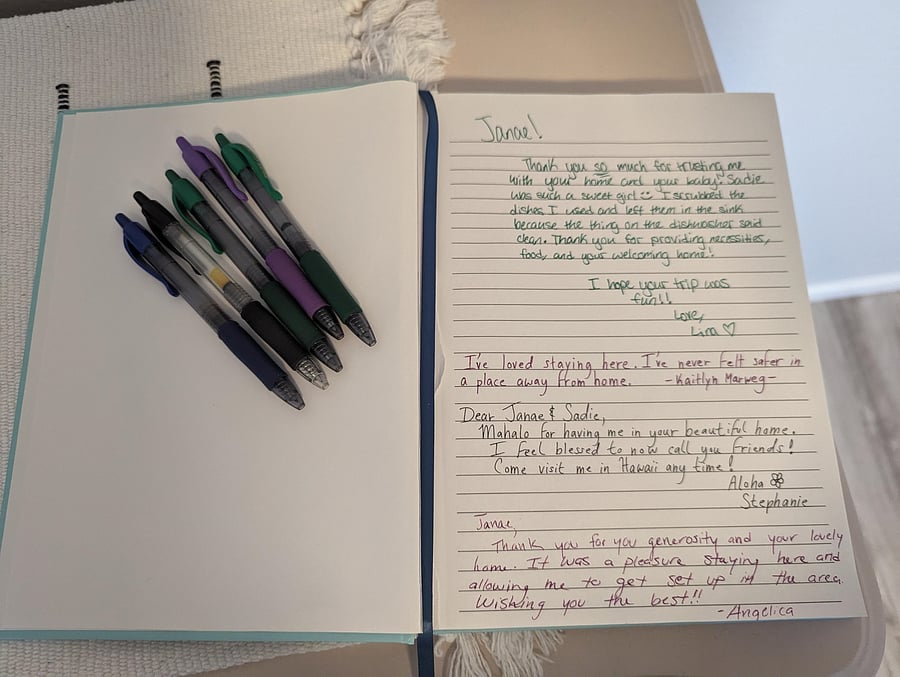 Janae!
Thank you so much for trusting me
with your home and your baby! Sadie
was such a sweet girl I scrubbed the
dishes I used and left them in the sink
because the thing on the dishwasher said
clean. Thank you for providing necessities,
food, and your welcoming home!
I hope your trip was
fun!!
Love,
Lina ♡
I've loved staying here. I've never felt safer in
a place away from home. -Kaitlyn Marweg-
Dear Janae & Sadie,
Mahalo for having me in your beautiful home.
I feel blessed to now call you friends!
Come visit me in Hawaii any time!
Aloha
Stephanie
Janae,
Thank you for you generosity and your lovely
home. It was a pleasure staying here and
allowing me to get set up in the area.
Wishing you the best!!
-Angelica